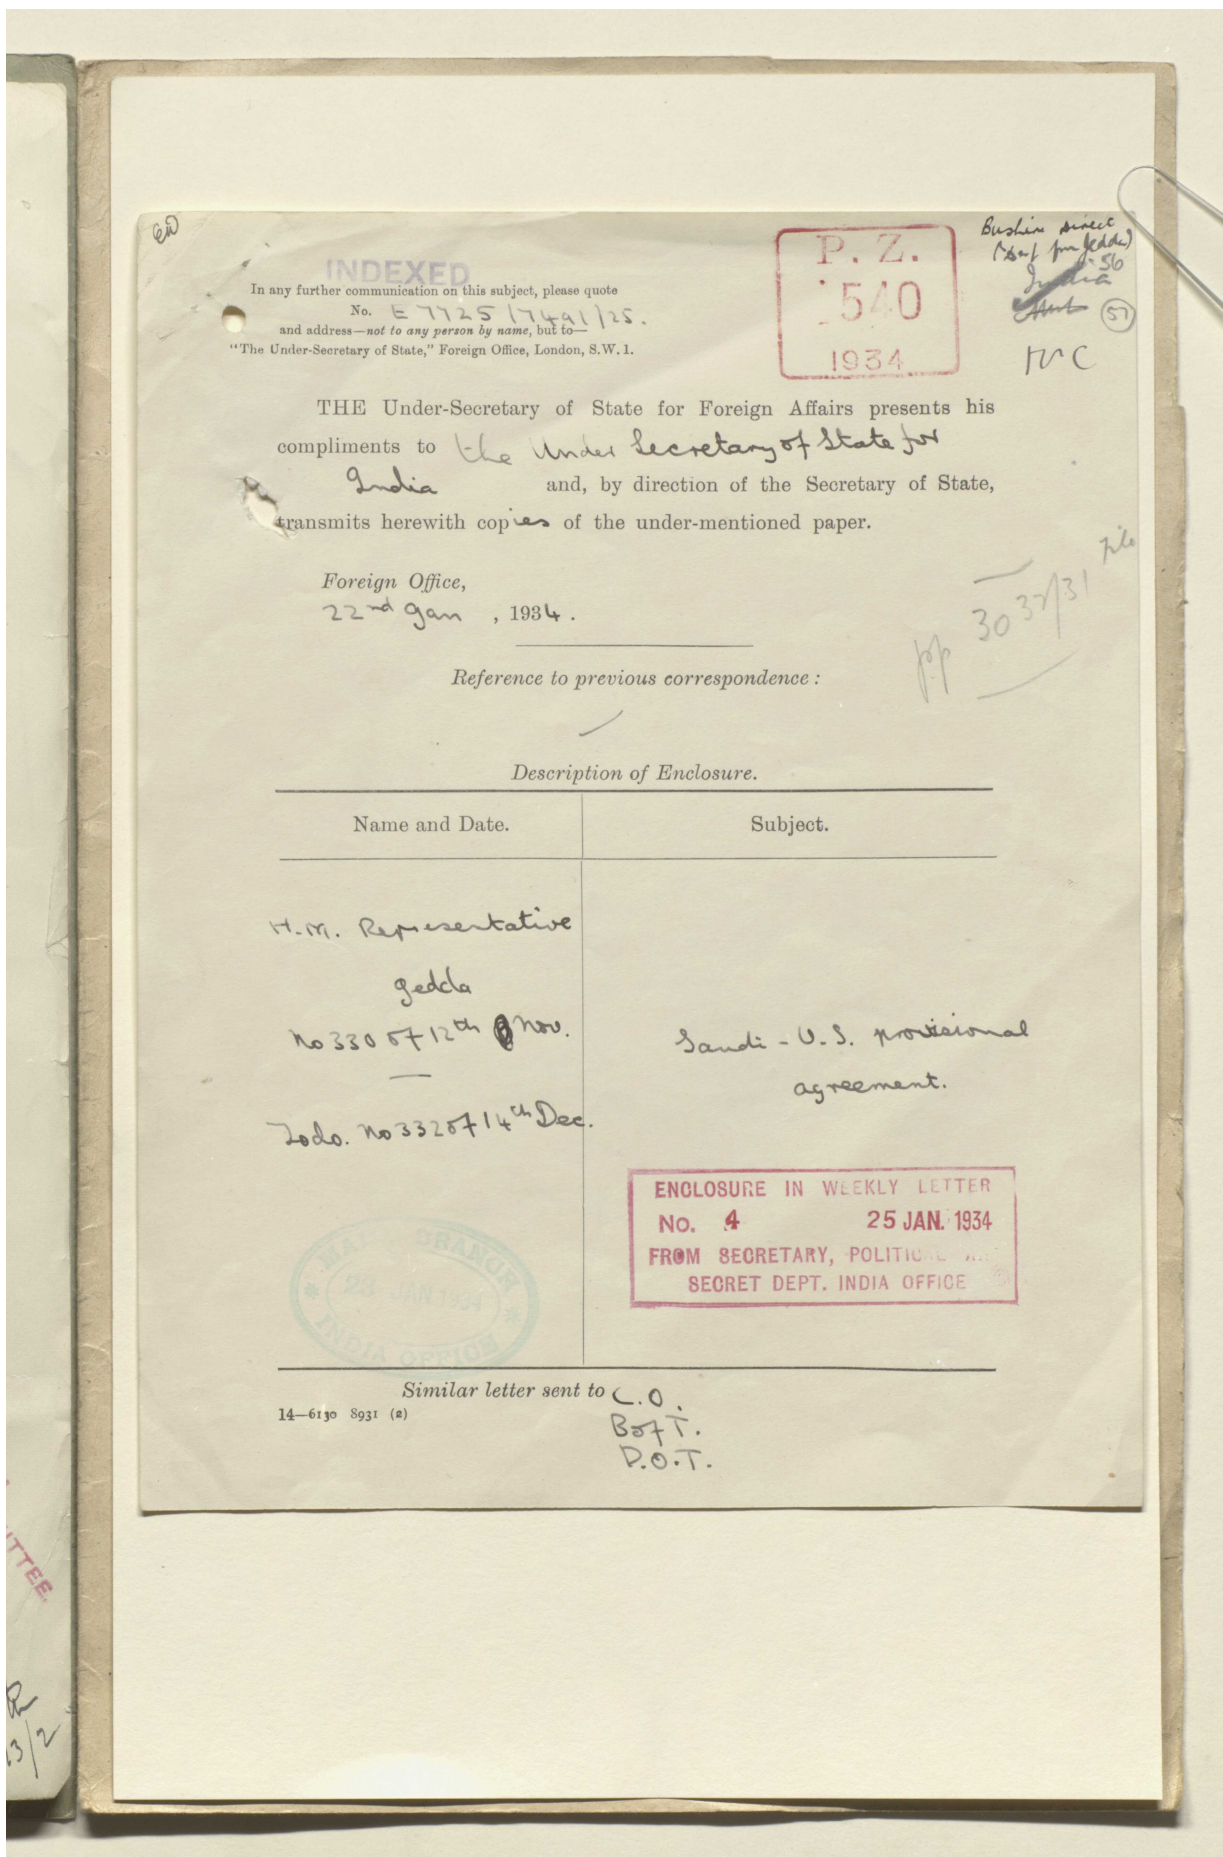 INDEXED
In any further communication on this subject, please quote
No. E 7725/7491/25.
and address—not to any person by name, but to—
"The Under-Secretary of State," Foreign Office, London, S.W. 1.
P. Z.
540
1934
Bushire direct
Jedda)
56
India
57
THE Under-Secretary of State for Foreign Affairs presents his
compliments to the Under Secretary of State for
India and, by direction of the Secretary of State,
transmits herewith copies of the under-mentioned paper.
Foreign Office,
22nd Jan , 1934.
File
pp 3032/31
Reference to previous correspondence :
Description of Enclosure.
Name and Date.
Subject.
H.M. Representative
Jedda
No 330 of 12th Nov.
Todo. No 332 of 14th Dec.
Saudi - U.S. provisional
agreement.
ENCLOSURE IN WEEKLY LETTER
No. 4 25 JAN. 1934
FROM SECRETARY, POLITICAL
SECRET DEPT. INDIA OFFICE
BRANCH
23 JAN 1934
INDIA OFFICE
Similar letter sent to C.O.
14—6130 8931 (2)
B of T.
D.O.T.
TTEE.
3/2